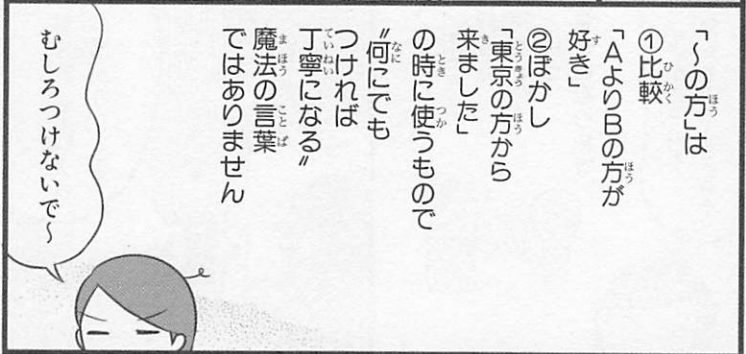 「～の方」は
①比較
「AよりBの方が
好き」
②ぼかし
「東京の方から
来ました」
の時に使うもので
〝何にでも
つければ
丁寧になる〟
魔法の言葉
ではありません
むしろつけないで～